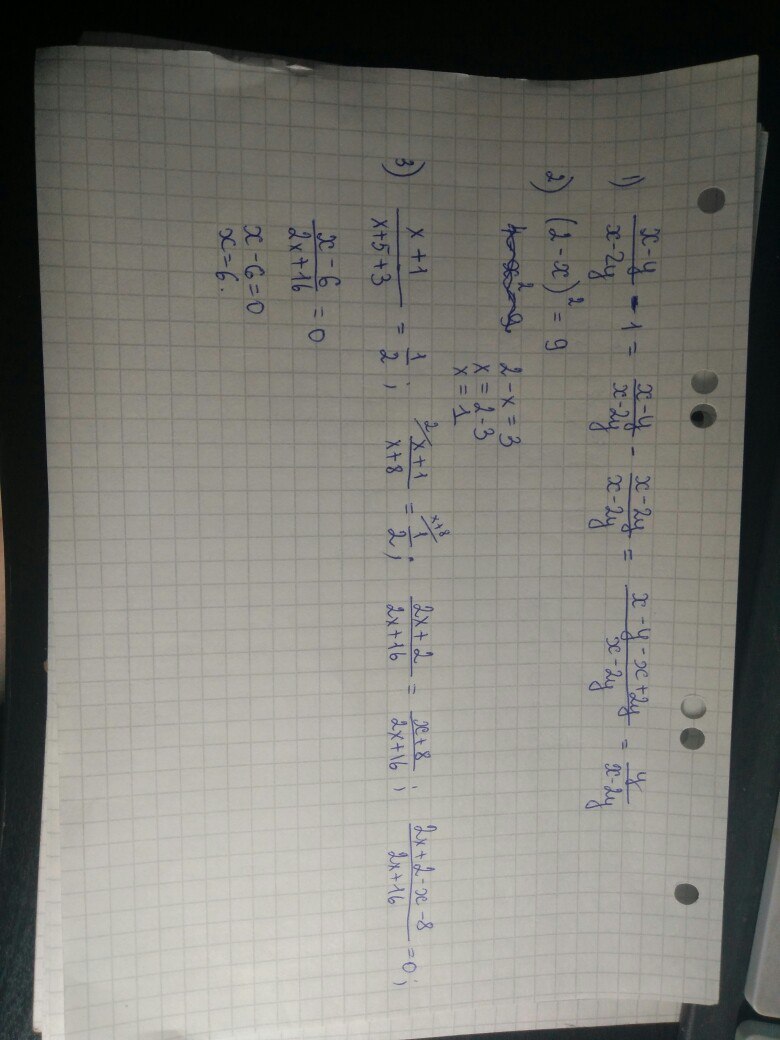 1) (x-y)/(x-2y) - 1 = (x-y)/(x-2y) - (x-2y)/(x-2y) = (x-y-x+2y)/(x-2y) = y/(x-2y)
2) (2-x)² = 9
4-x²=9
2-x=3
x=2-3
x=1
3) (x+1)/(x+5+3) = 1/2; 2/ (x+1)/(x+8) = x+8/ 1/2; (2x+2)/(2x+16) = (x+8)/(2x+16); (2x+2-x-8)/(2x+16) = 0;
(x-6)/(2x+16) = 0
x-6=0
x=6.